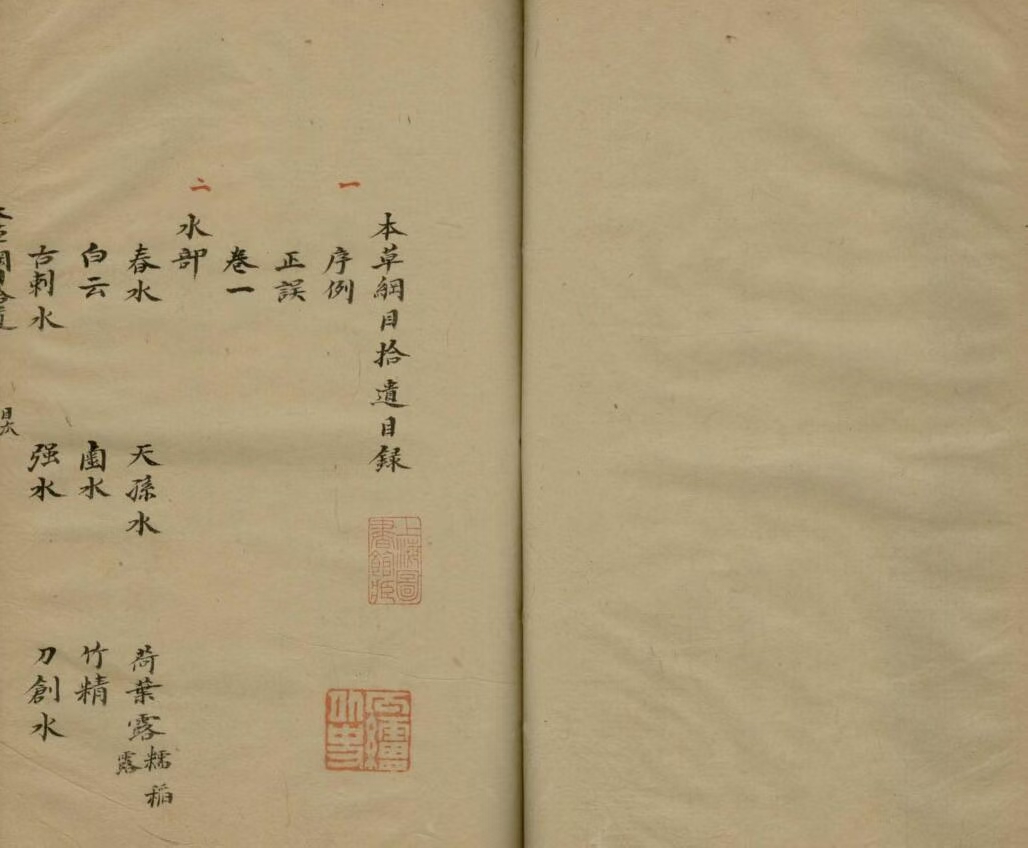 本草綱目拾遺目録
一
序例
正誤
卷一
二
水部
春水 天孫水 荷葉露 糯稻露
白云 鹵水 竹精
古剌水 强水 刀創水
上海圖書館藏